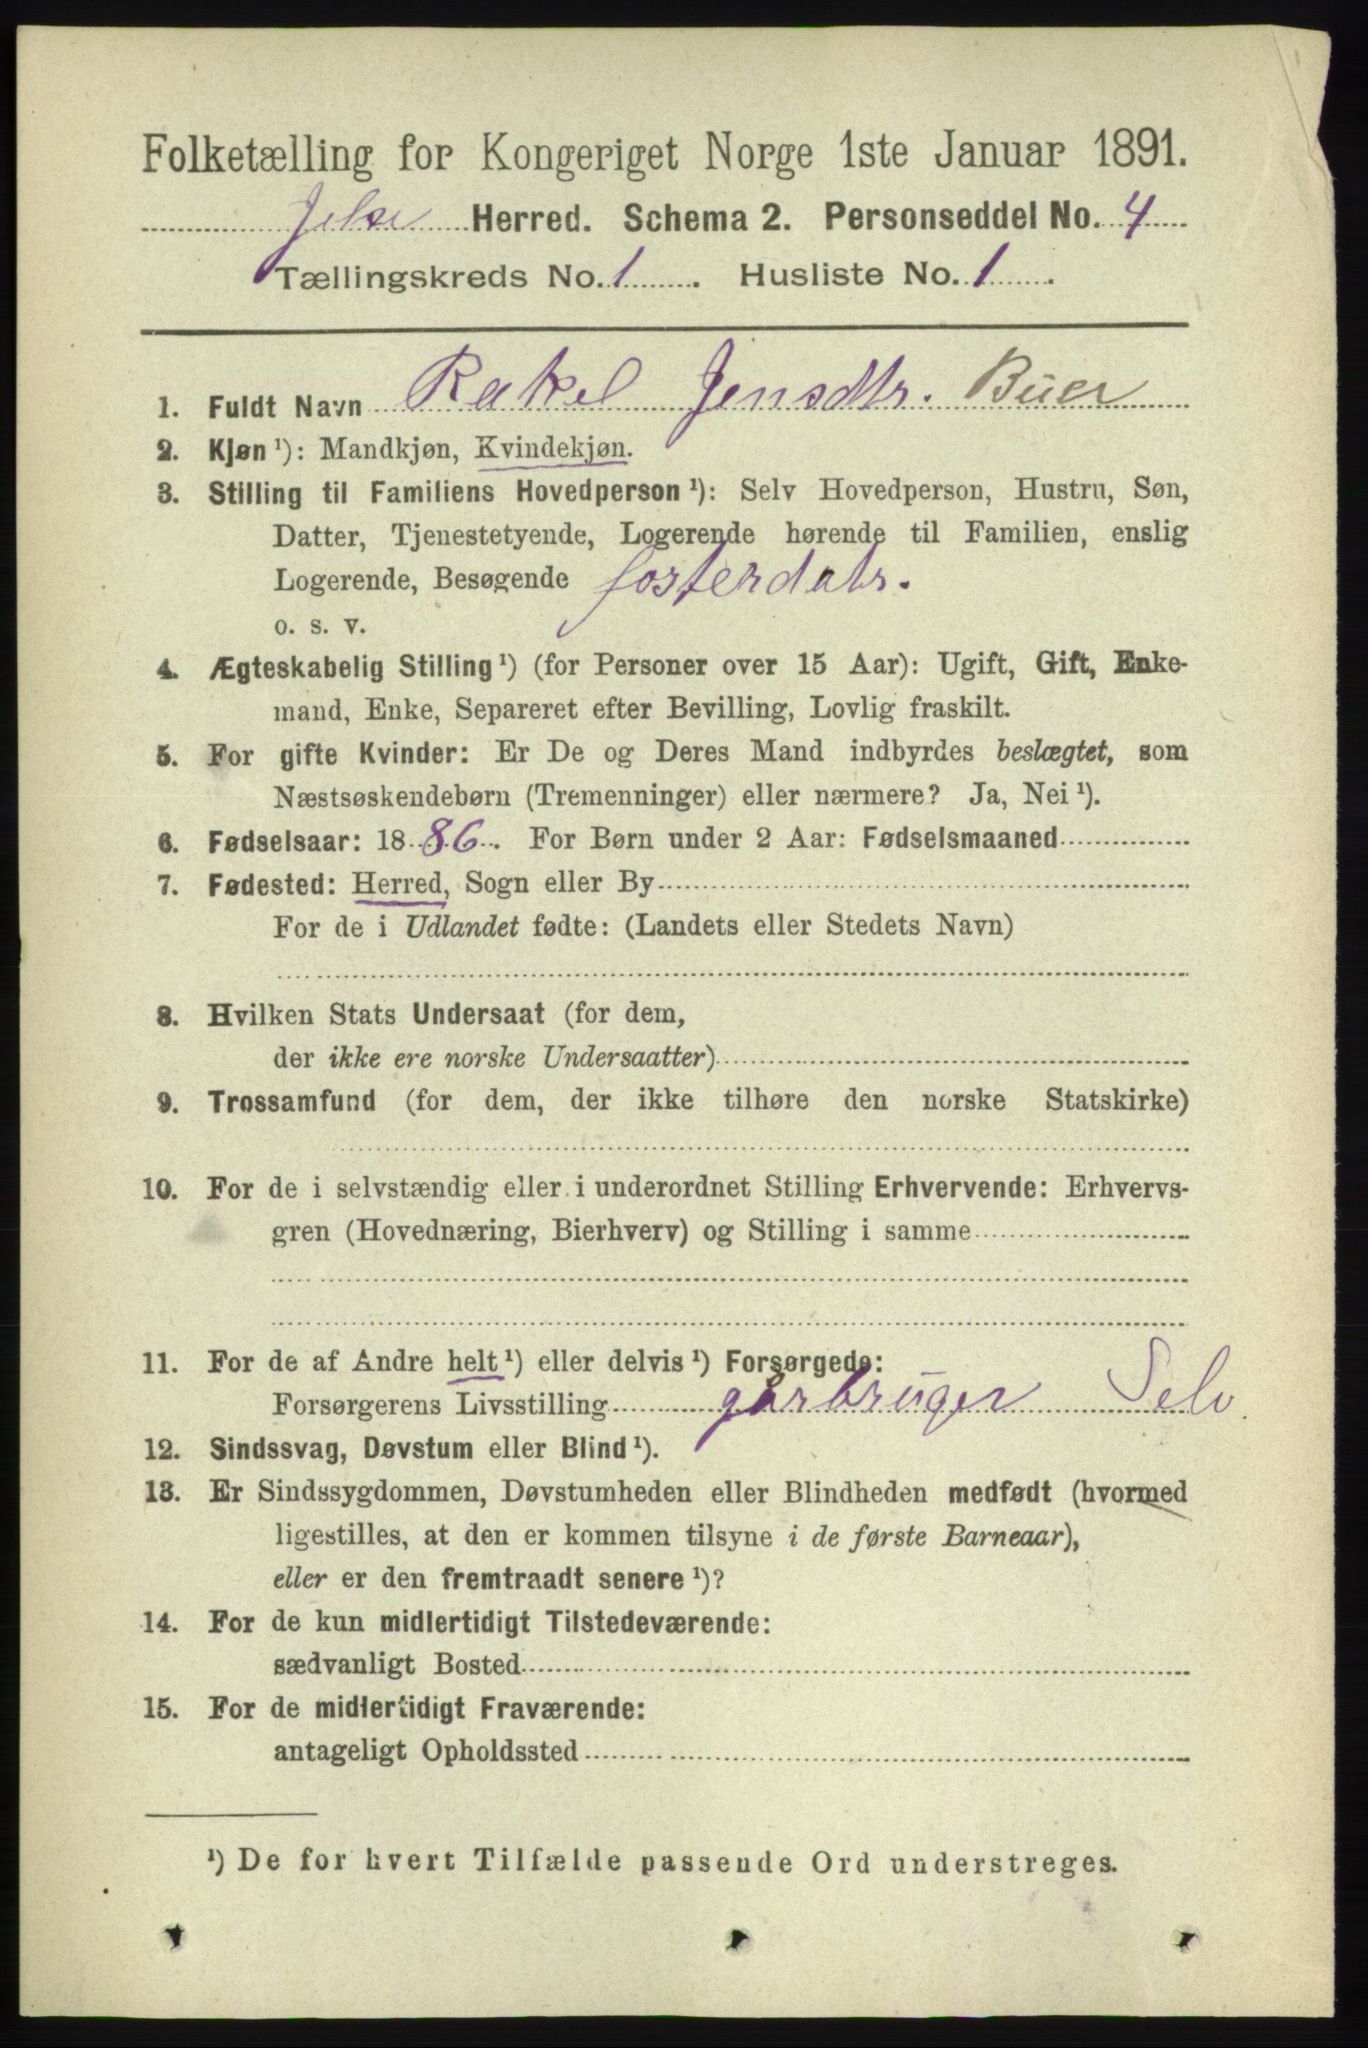 Folketælling for Kongeriget Norge 1ste Januar 1891.
Jelse Herred. Schema 2. Personseddel No. 4
Tællingskreds No. 1. Husliste No. 1.
1. Fuldt Navn Rakel Jensdtr. Buer
2. Kjøn ¹): Mandkjøn, Kvindekjøn.
3. Stilling til Familiens Hovedperson ¹): Selv Hovedperson, Hustru, Søn,
Datter, Tjenestetyende, Logerende hørende til Familien, enslig
Logerende, Besøgende fosterdatr.
o. s. v.
4. Ægteskabelig Stilling ¹) (for Personer over 15 Aar): Ugift, Gift, Enke-
mand, Enke, Separeret efter Bevilling, Lovlig fraskilt.
5. For gifte Kvinder: Er De og Deres Mand indbyrdes beslægtet, som
Næstsøskendebørn (Tremenninger) eller nærmere? Ja, Nei ¹).
6. Fødselsaar: 1886. For Børn under 2 Aar: Fødselsmaaned
7. Fødested: Herred, Sogn eller By
For de i Udlandet fødte: (Landets eller Stedets Navn)
8. Hvilken Stats Undersaat (for dem,
der ikke ere norske Undersaatter)
9. Trossamfund (for dem, der ikke tilhøre den norske Statskirke)
10. For de i selvstændig eller i underordnet Stilling Erhvervende: Erhvervs-
gren (Hovednæring, Bierhverv) og Stilling i samme
11. For de af Andre helt ¹) eller delvis ¹) Forsørgede:
Forsørgerens Livsstilling gårbruger Selv.
12. Sindssvag, Døvstum eller Blind ¹).
13. Er Sindssygdommen, Døvstumheden eller Blindheden medfødt (hvormed
ligestilles, at den er kommen tilsyne i de første Barneaar),
eller er den fremtraadt senere ¹)?
14. For de kun midlertidigt Tilstedeværende:
sædvanligt Bosted
15. For de midlertidigt Fraværende:
antageligt Opholdssted
¹) De for hvert Tilfælde passende Ord understreges.